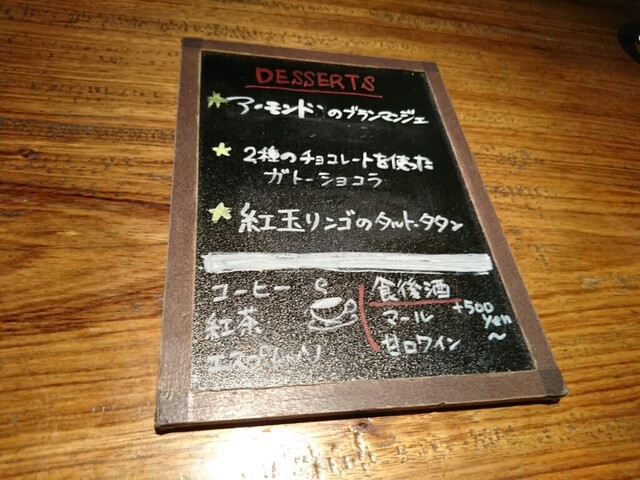 DESSERTS
アーモンドのブランマンジェ
2種のチョコレートを使った
ガトーショコラ
紅玉リンゴのタルト・タタン
コーヒー
紅茶
エスプレッソ
食後酒
マール
甘口ワイン
+500
yen
～